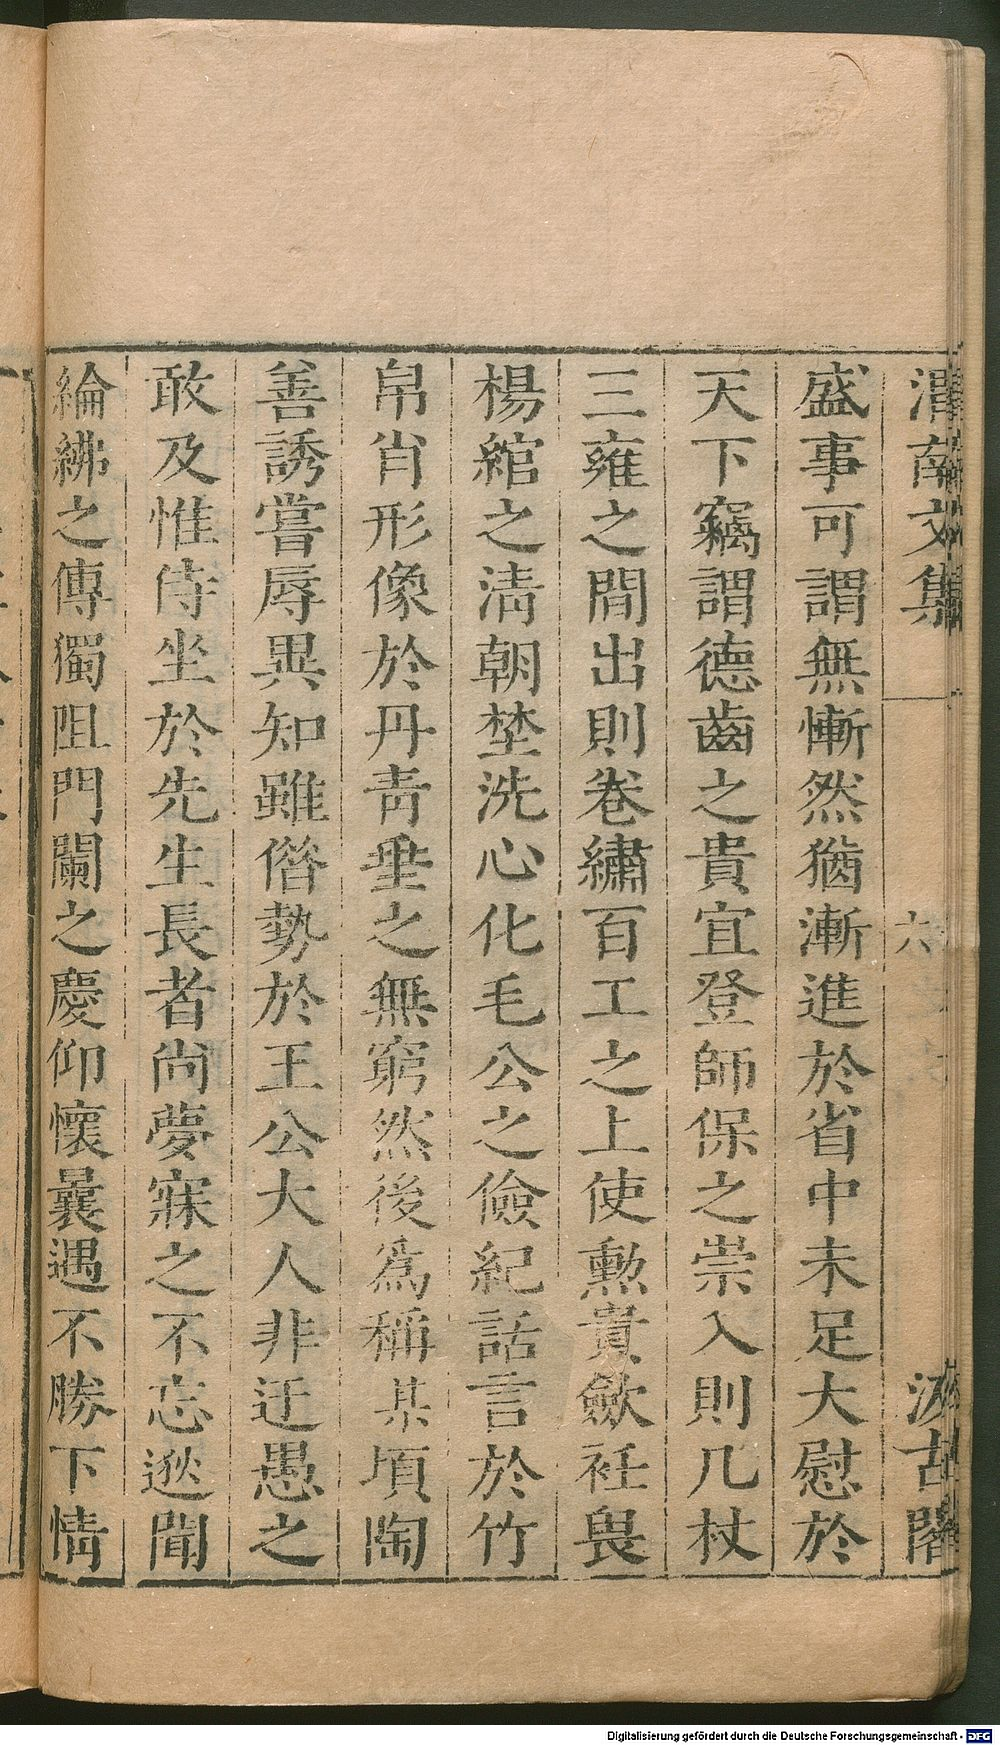 渭南文集 六 汲古閣
盛事可謂無慚然猶漸進於省中未足大慰於
天下竊謂德齒之貴宜登師保之崇入則几杖
三雍之間出則卷繡百工之上使勲貴歛衽畏
楊綰之淸朝埜洗心化毛公之儉紀話言於竹
帛肖形像於丹靑垂之無窮然後爲稱某頃陶
善誘嘗辱異知雖僭勢於王公大人非迂愚之
敢及惟侍坐於先生長者尚夢寐之不忘逖聞
綸綍之傳獨阻門闌之慶仰懷曩遇不勝下情
Digitalisierung gefördert durch die Deutsche Forschungsgemeinschaft - DFG